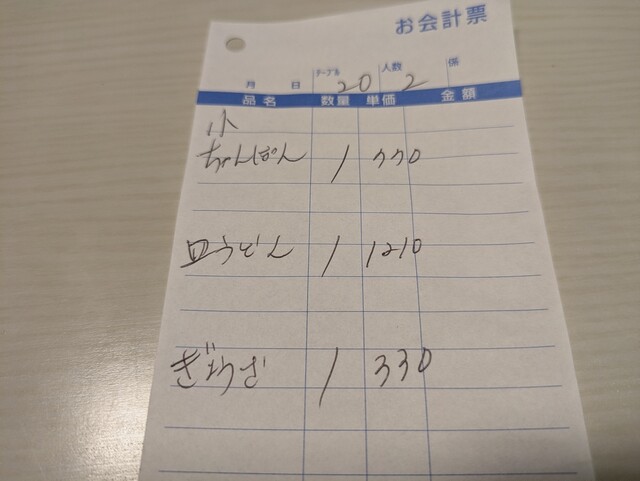 お会計票
月 日 テーブル 20 人数 2 係
品名 数量 単価 金額
小
ちゃんぽん 1 770
皿うどん 1 1210
ぎょうざ 1 330